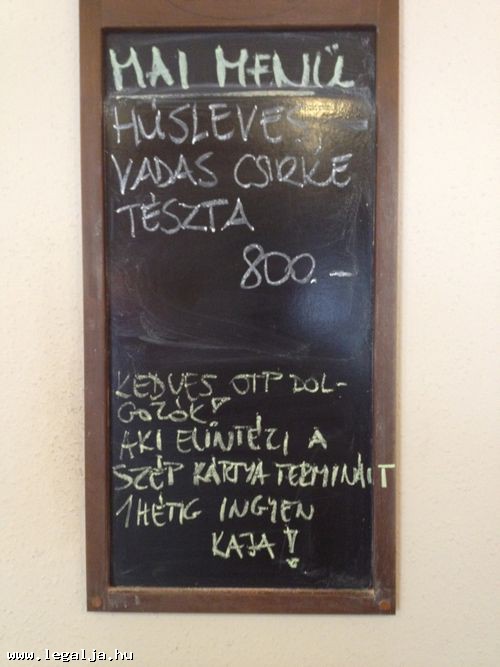 MAI MENÜ
HÚSLEVES,-
VADAS CSIRKE
TÉSZTA
800.-
KEDVES OTP DOL-
GOZÓK!
AKI ELINTÉZI A
SZÉP KÁRTYA TERMINÁLT
1 HÉTIG INGYEN
KAJA!
www.legalja.hu